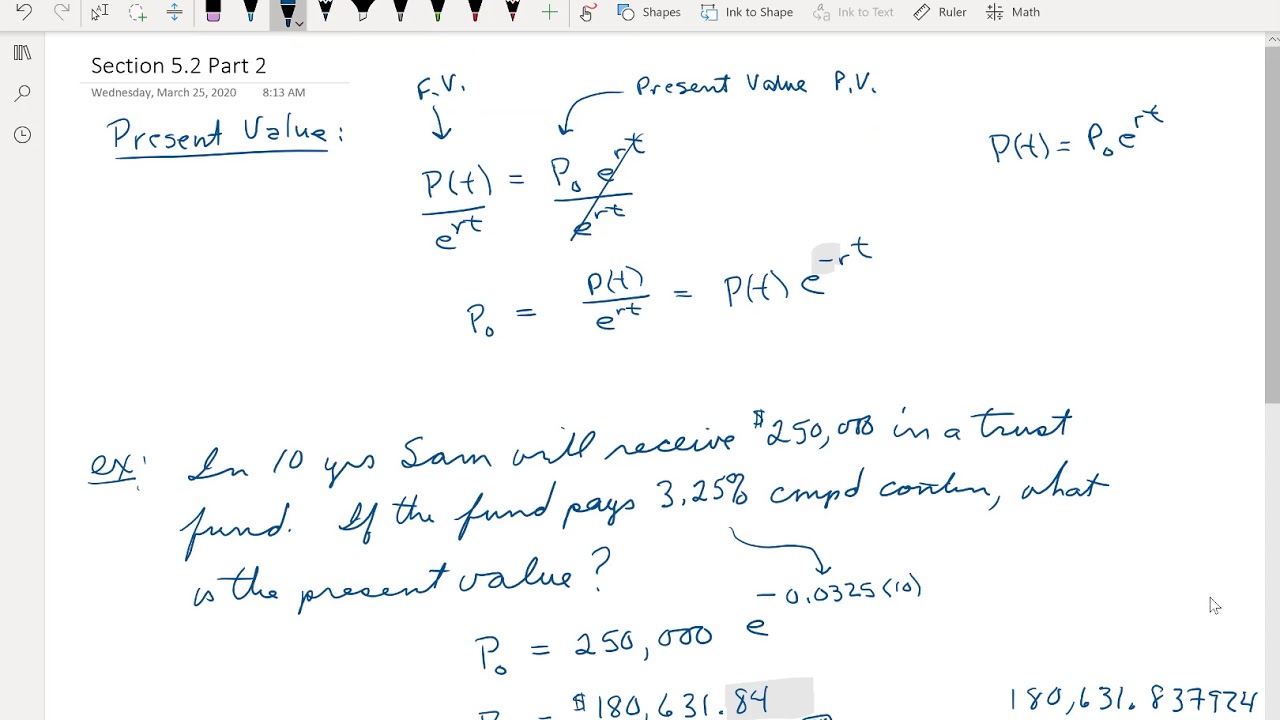 Shapes Ink to Shape Ink to Text Ruler Math
Section 5.2 Part 2
Wednesday, March 25, 2020 8:13 AM
F.V.
Present Value P.V.
Present Value:
P(t) = P₀ e^rt
e^rt e^rt
P(t) = P₀e^rt
P₀ = P(t)/e^rt = P(t) e^-rt
ex: In 10 yrs Sam will receive $250,000 in a trust
fund. If the fund pays 3.25% cmpd contin, what
is the present value?
P₀ = 250,000 e^-0.0325(10)
= $180,631.84
180,631.837924